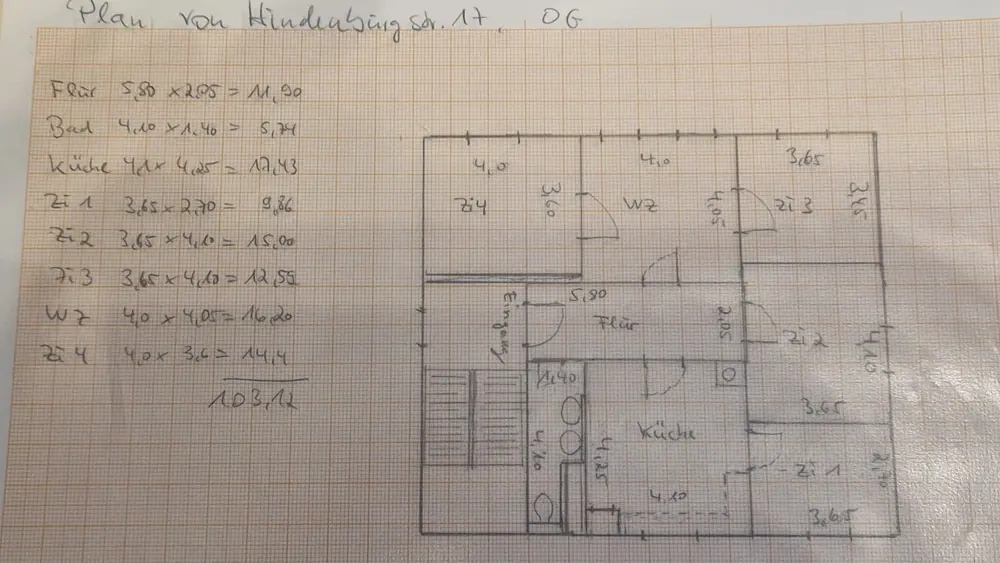 Plan von Hindenburgstr. 17, OG
Flur 5,80 x 2,05 = 11,90
Bad 4,10 x 1,40 = 5,74
Küche 4,1 x 4,25 = 17,43
Zi 1 3,65 x 2,70 = 9,86
Zi 2 3,65 x 4,10 = 15,00
Zi 3 3,65 x 4,10 = 12,59
WZ 4,0 x 4,05 = 16,20
Zi 4 4,0 x 3,6 = 14,4
103,12
4,0
4,0
3,65
Zi 4
3,60
WZ
4,05
Zi 3
3,45
Eingang
5,80
Flur
2,05
Zi 2
4,10
1,40
3,65
Küche
4,10
4,25
4,10
Zi 1
2,70
3,65